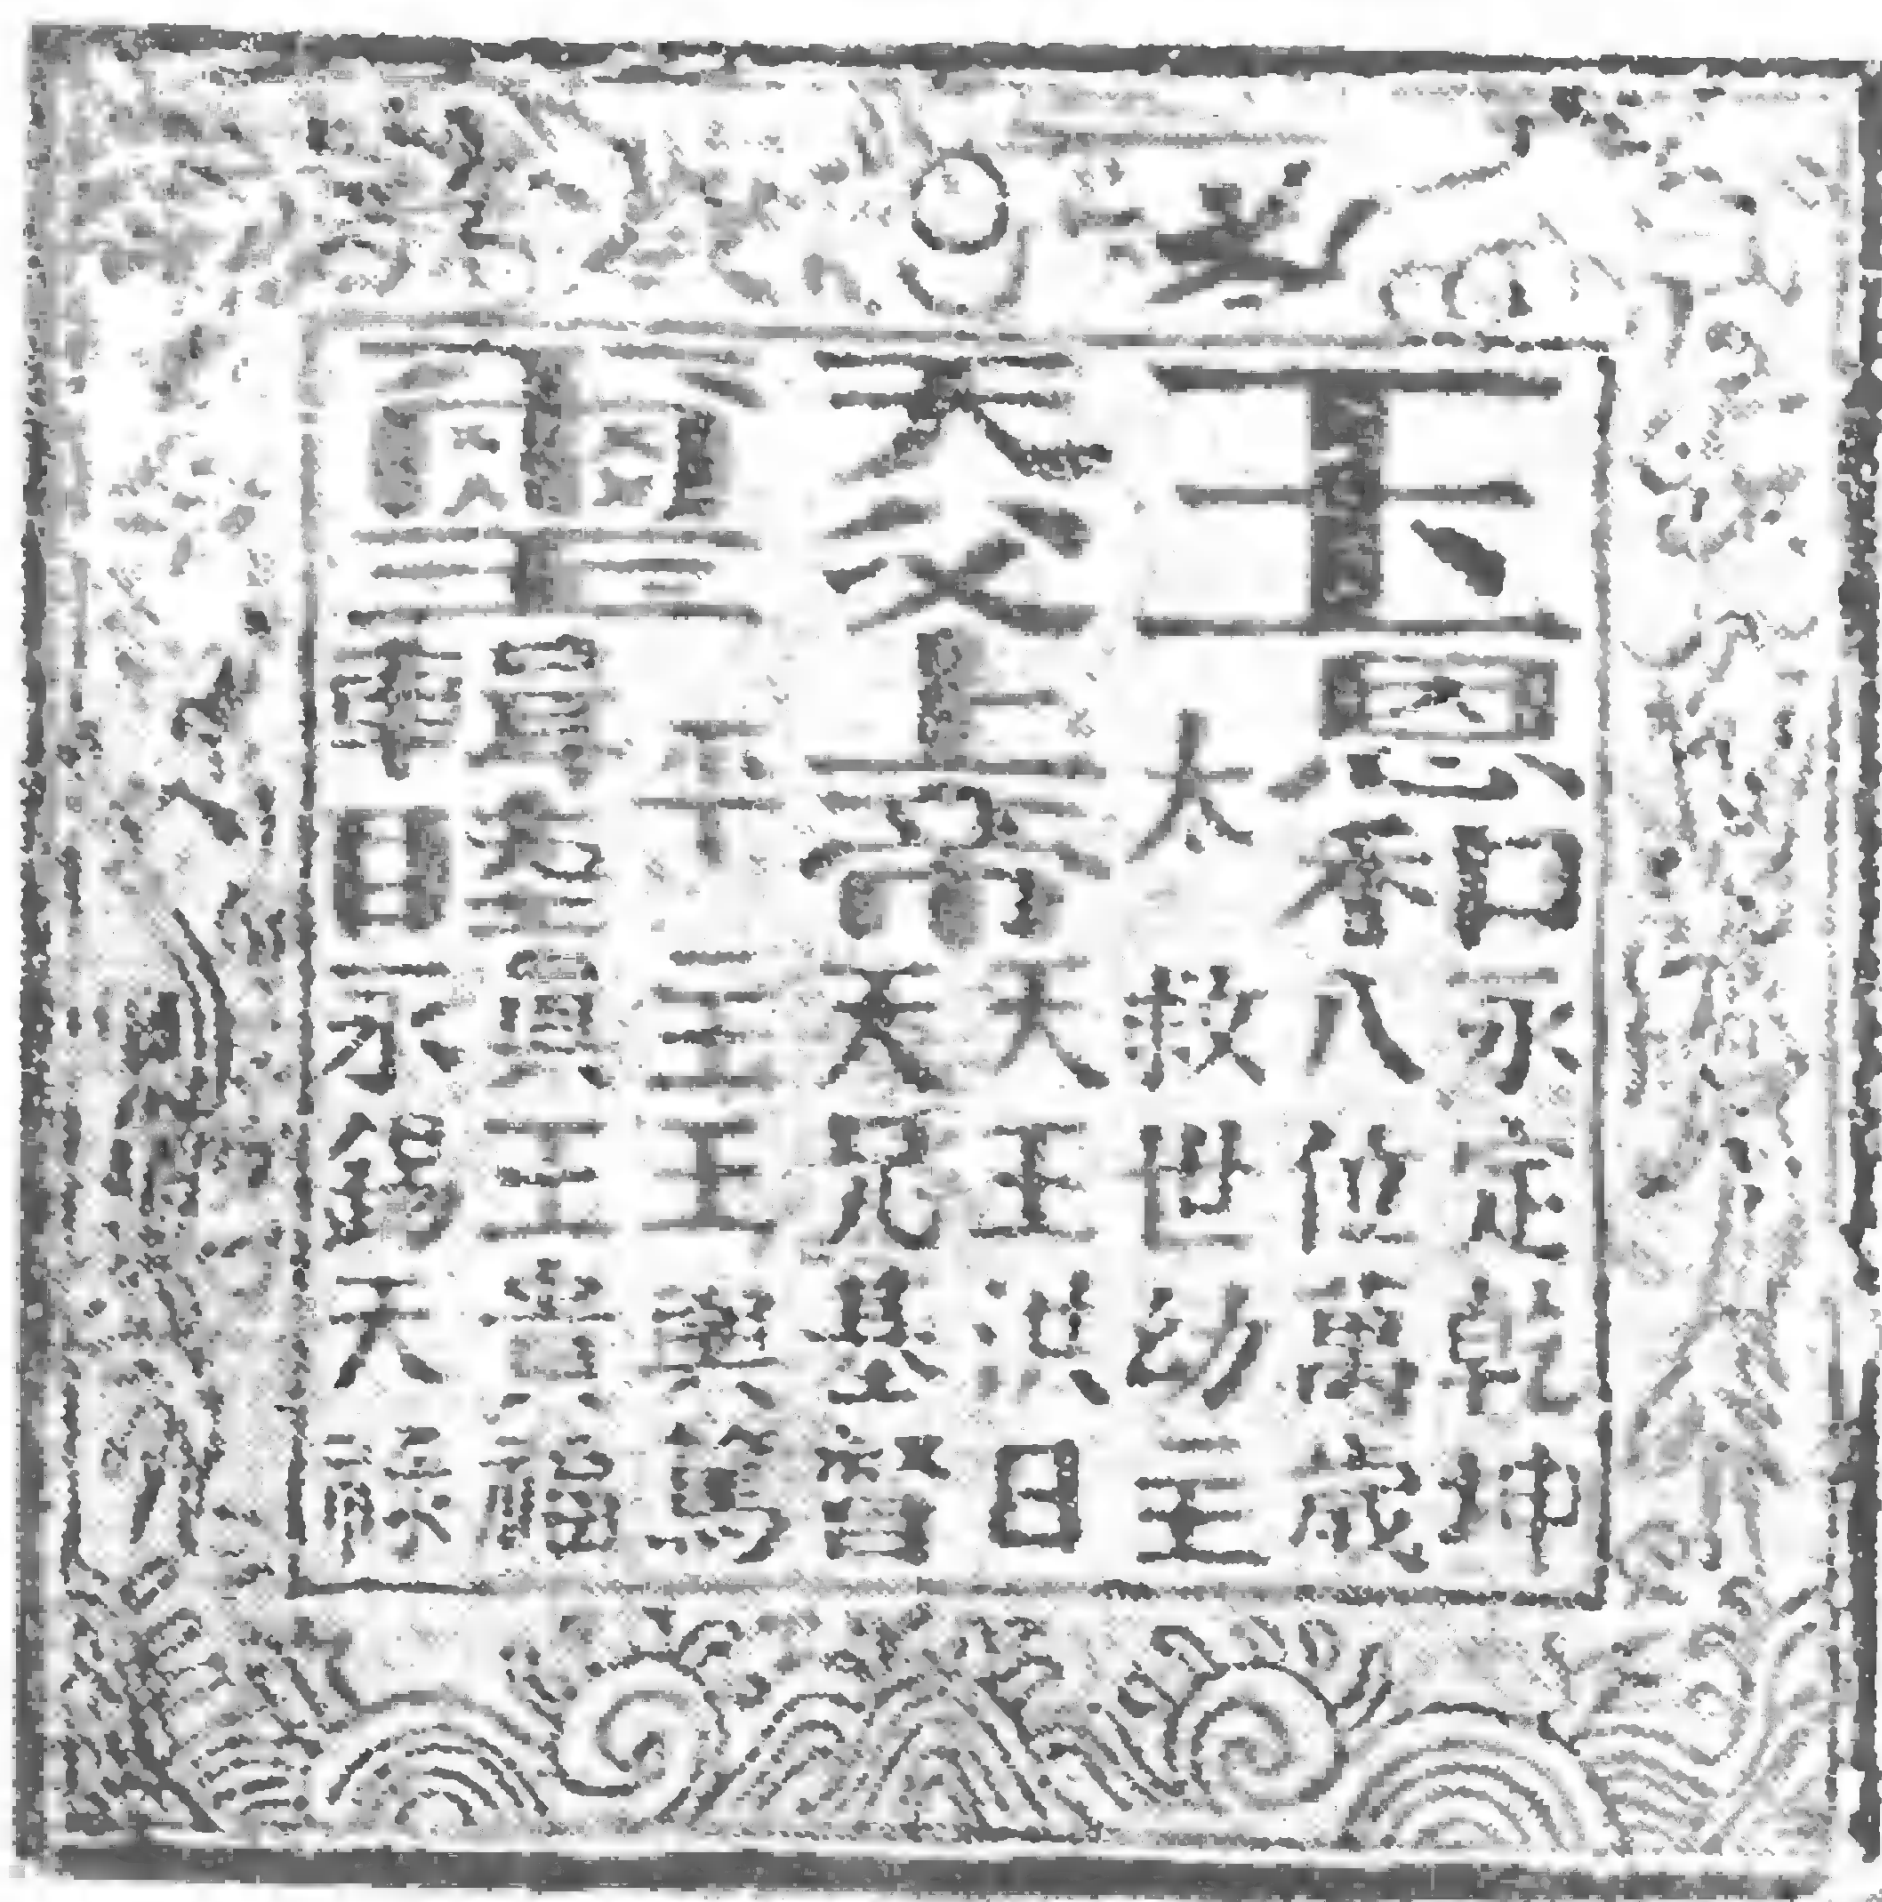 玉璽
天父上帝
恩和
輯睦
太平
永定乾坤
八位萬歲
救世幼主
天王洪日
天兄基督
主王輿篤
真王貴福
永錫天祿